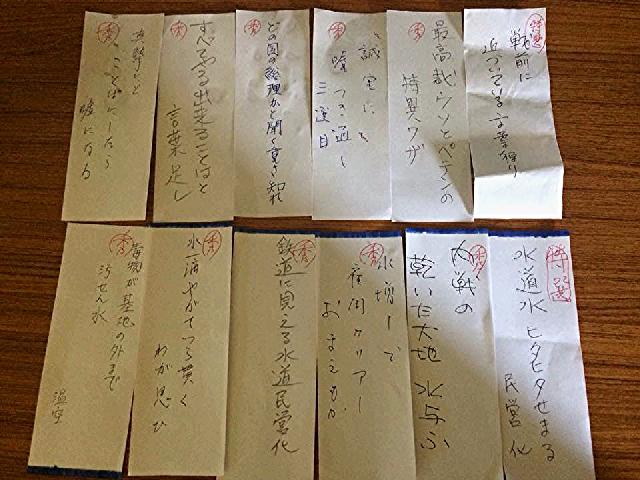 特選
戦前に
近づいている言葉狩り
秀
最高裁ウソとペテンの
特異ワザ
秀
誠実に
嘘つき通し
三選目
秀
どの国の総理かと聞く
秀
すべてやる出来ることはと
言葉足し
秀
ことばにしたら
嘘になる
特選
水道水ヒタヒタせまる
民営化
秀
内戦の
乾いた大地 水与ふ
秀
水増しで
雇用クリアー
おまえもか
秀
鉄道に見える水道民営化
秀
水一滴やがて 貫く
わが思ひ
秀
毒物が基地の外まで
汚せん水